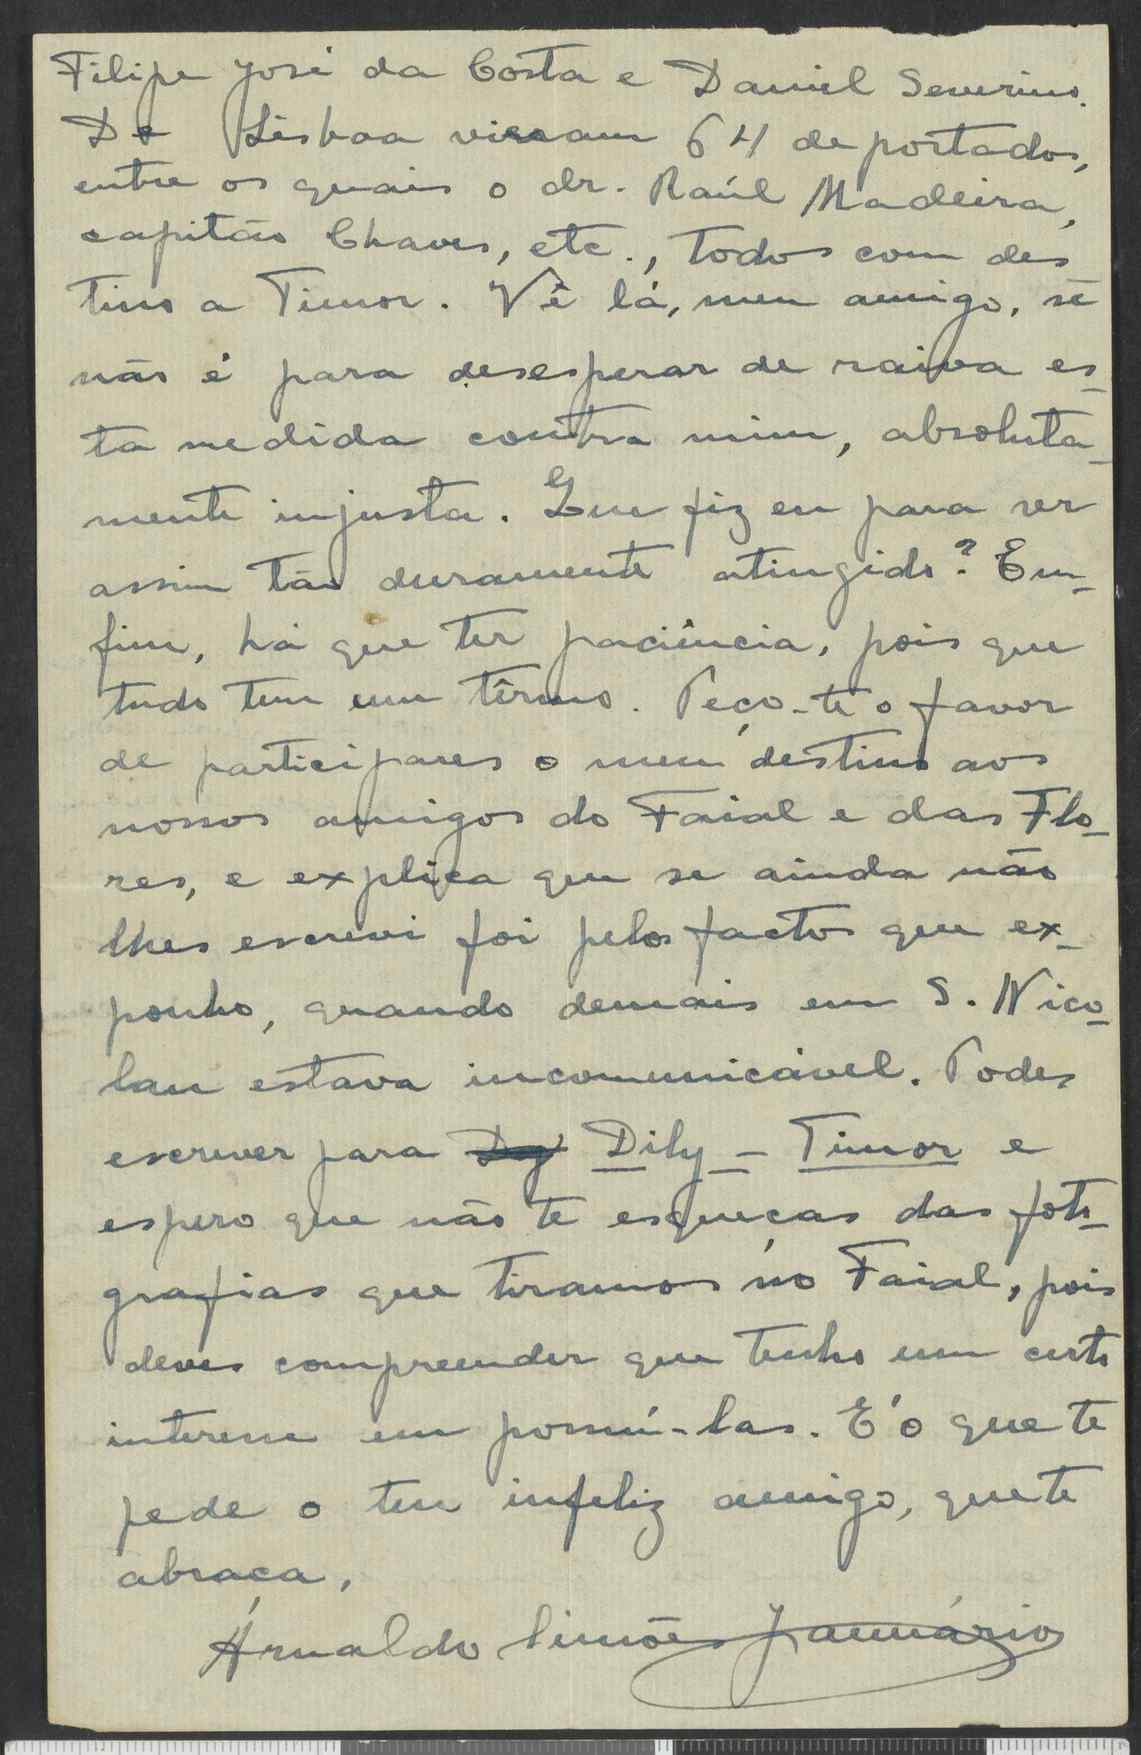 Filipe José da Costa e Daniel Severino.
De Lisboa vieram 64 deportados,
entre os quais o dr. Raúl Madeira,
capitão Chaves, etc., todos com des-
tino a Timor. Vê lá, meu amigo, se
não é para desesperar de raiva es-
ta medida contra mim, absoluta-
mente injusta. Que fiz eu para ser
assim tão duramente atingido? Em-
fim, há que ter paciência, pois que
tudo tem um têrmo. Peço-te o favor
de participares o meu destino aos
nossos amigos do Faial e das Flo-
res, e explica que se ainda não
lhes escrevi foi pelos factos que ex-
ponho, quando demais em S. Nico-
lau estava incomunicável. Podes
escrever para Dily - Timor e
espero que não te esqueças das foto-
grafias que tiramos no Faial, pois
deves compreender que tenho um certo
interesse em possuí-las. E' o que te
pede o teu infeliz amigo, que te
abraça,
Arnaldo Simões Januário